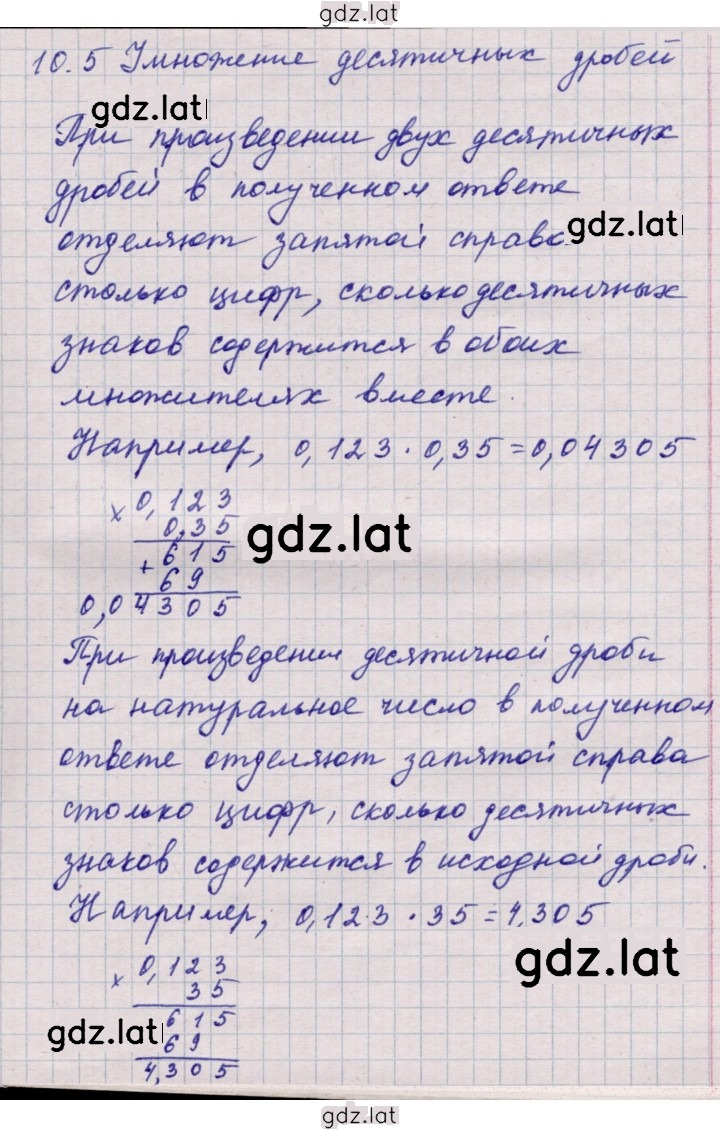 gdz.lat
10.5 Умножение десятичных дробей
gdz.lat
При произведении двух десятичных
дробей в полученном ответе
отделяют запятой справа
gdz.lat
столько цифр, сколько десятичных
знаков содержится в обоих
множителях вместе.
Например, 0,123 · 0,35 = 0,04305
× 0,123
0,35
gdz.lat
+ 615
69
0,04305
При произведении десятичной дроби
на натуральное число в полученном
ответе отделяют запятой справа
столько цифр, сколько десятичных
знаков содержится в исходной дроби.
Например, 0,123 · 35 = 4,305
gdz.lat
× 0,123
35
615
gdz.lat
69
4,305
gdz.lat